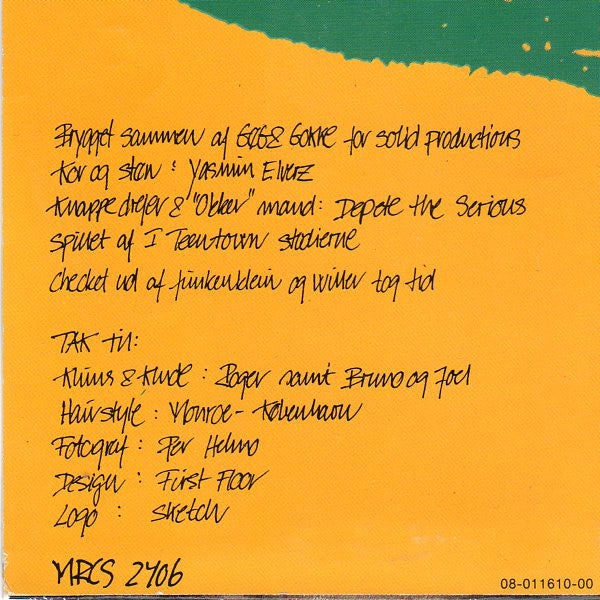 Brygget sammen af G&G & Gokke for solid productions
Kor og støn : Yasmin Elvirz
Knappedrejer & "Okker" mand: Depete the Serious
Spillet af I Teentown studierne
checket ud af funkenklein og Willer tog tid
TAK til:
Klüns & Klude : Roger samt Bruno og Joel
Hairstyle : Monroe - København
Fotograf : Per Helmo
Design : First Floor
Logo : Sketch
MRCS 2406
08-011610-00